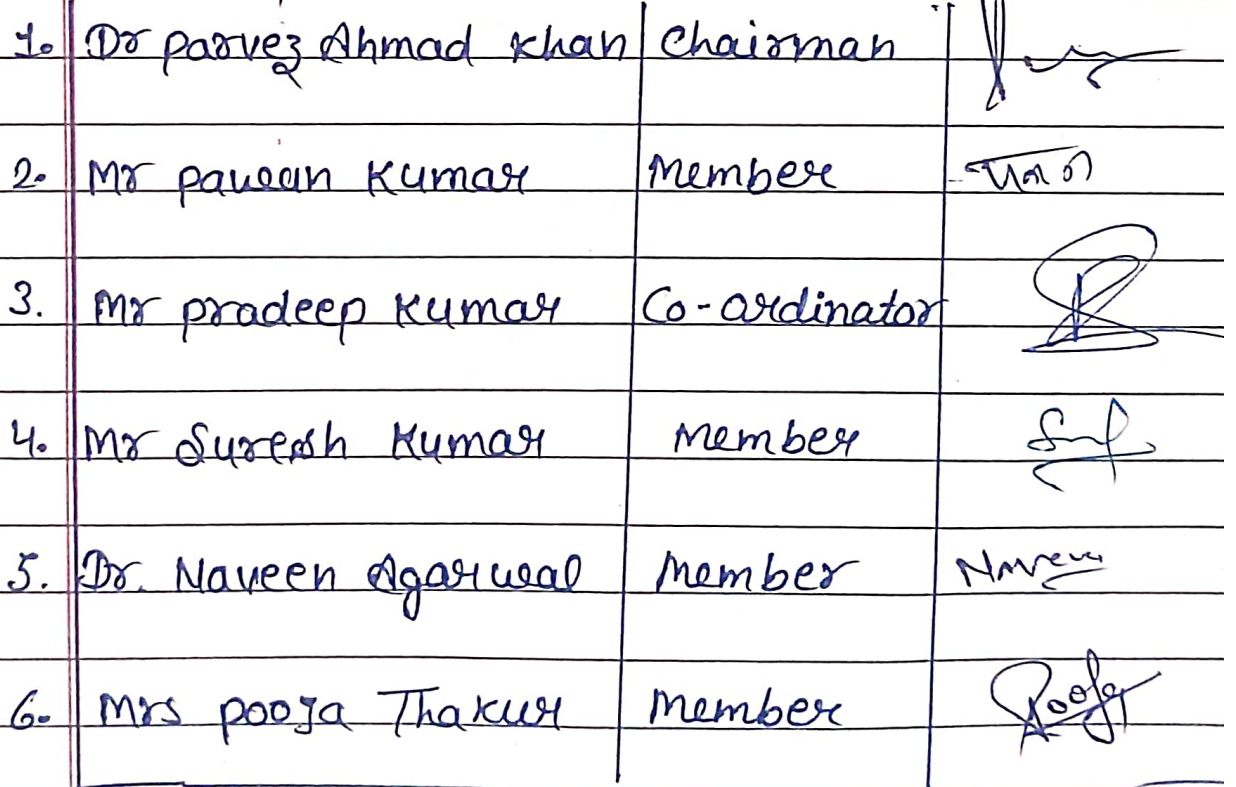 1. Dr Parvez Ahmad Khan Chairman
2. Mr Pawan Kumar Member
3. Mr Pradeep Kumar Co-ordinator
4. Mr Suresh Kumar Member
5. Dr. Naveen Agarwal Member Naveen
6. Mrs Pooja Thakur Member Pooja